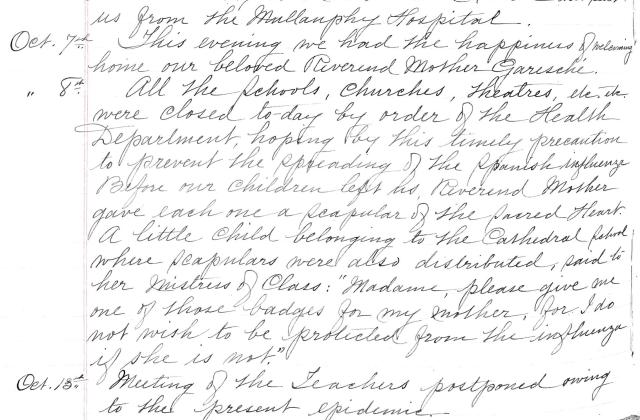 us from the Mullanphy Hospital.
Oct. 7th This evening we had the happiness of welcoming
home our beloved Reverend Mother Garesché.
" 8th All the Schools, Churches, Theatres, etc. etc.
were closed to-day by order of the Health
Department, hoping by this timely precaution
to prevent the spreading of the Spanish influenza
Before our children left us, Reverend Mother
gave each one a scapular of the Sacred Heart.
A little child belonging to the Cathedral School
where scapulars were also distributed, said to
her Mistress of Class: "Madame, please give me
one of those badges for my mother, for I do
not wish to be protected from the influenza
if she is not."
Oct. 15th Meeting of the Teachers postponed owing
to the present epidemic.